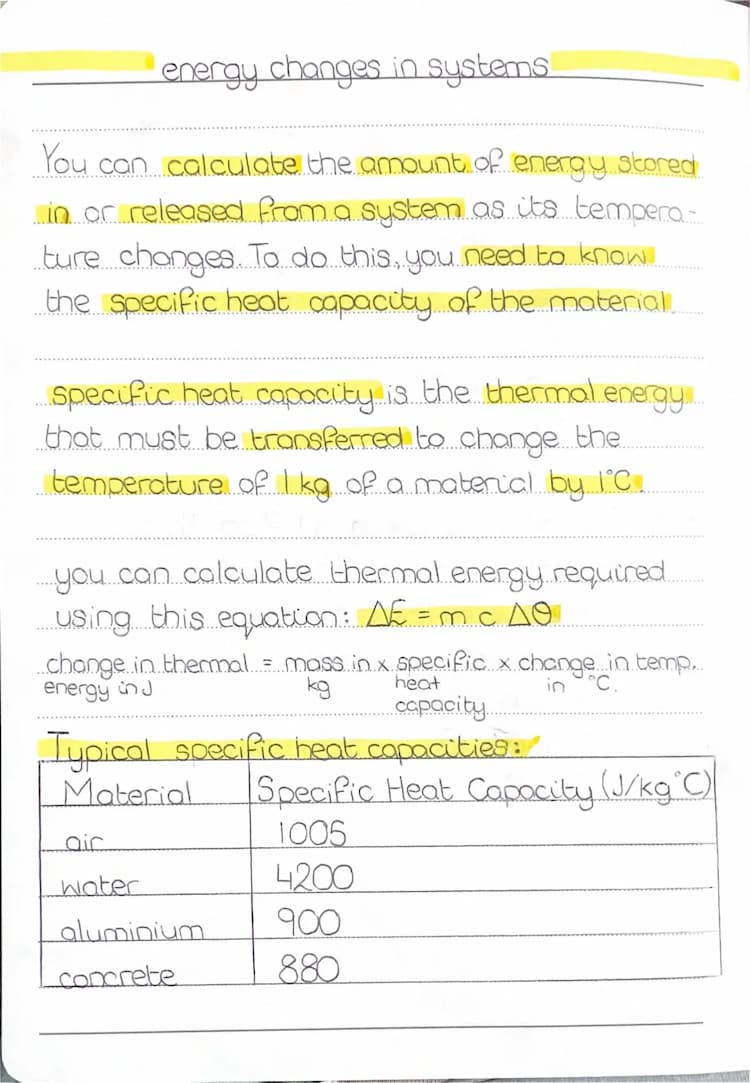 energy changes in systems
You can calculate the amount of energy stored
in or released from a system as its tempera-
ture changes. To do this, you need to know
the specific heat capacity of the material.
specific heat capacity is the thermal energy
that must be transferred to change the
temperature of 1 kg of a material by 1°C.
you can calculate thermal energy required
using this equation: ΔE = m c Δθ
change in thermal = mass in x specific x change in temp.
energy in J kg heat in °C.
capacity
Typical specific heat capacities:
Material Specific Heat Capacity (J/kg°C)
air 1005
water 4200
aluminium 900
concrete 880